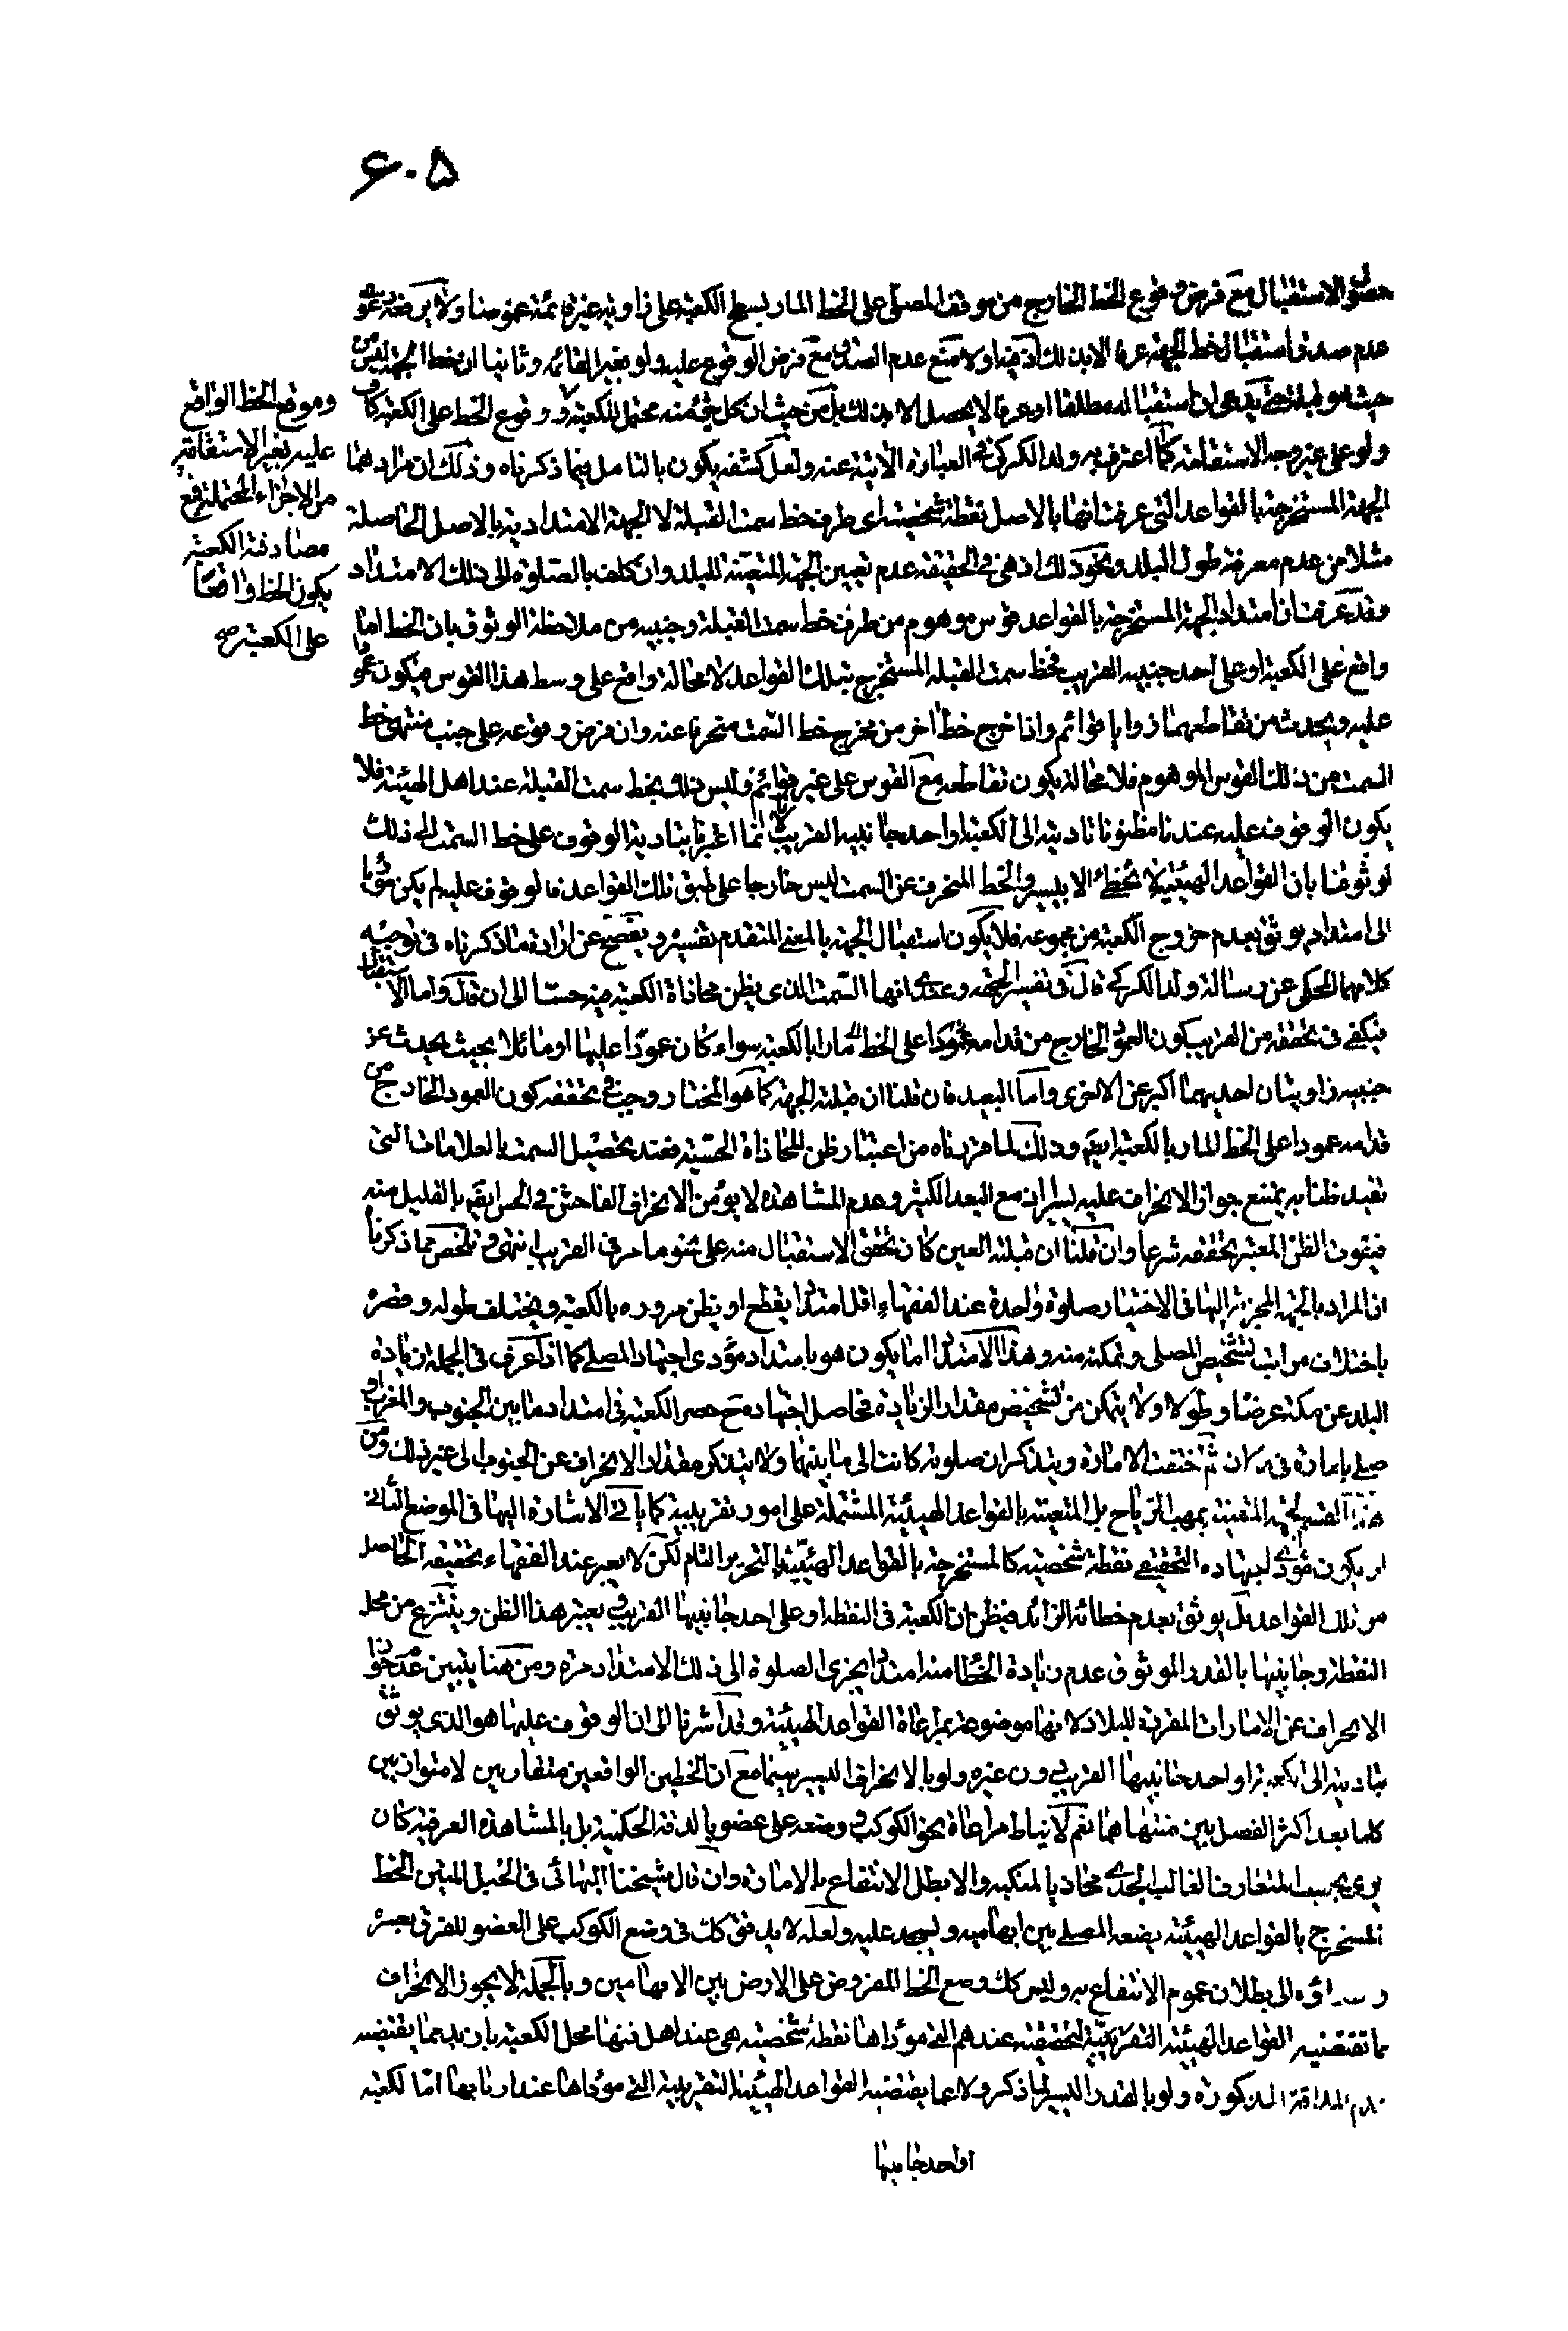 ۶۰۵
الاستقبال مع فرض وقوع الخط الخارج من موقف المصلى على الخط المار بسطح الكعبة على زاوية غير قائمة عموما ولا يرفعه
عدم صدق استقبال خط الجهة عرفا الا بذلك اولا منع عدم الصدق مع فرض الوقوع عليه ولو بغير القائمه وثانيا ان خط الجهة ليس من
حيث هو قبلة حتى يدعى ان استقباله مطلقا او عرفا لا يحصل الا بذلك بل من حيث ان كل جزء منه محتمل للكعبة ووقوع الخط على الكعبة كاف
ولو على غير وجه الاستقامة كما اعترف به ولد الكركى في العبارة الاتية عنه ولعل كشفه يكون بالتامل فيما ذكرناه وذلك ان مرادهما
الجهة المستخرجة بالقواعد التى عرفت انها بالاصل نقطة شخصية اى طرف خط سمت القبلة لا الجهة الامتدادية بالاصل الحاصلة
مثلا من عدم معرفة طول البلد ونحو ذلك اذ هى في الحقيقة عدم تعيين الجهة المتعينة للبلد وان كلف بالصلوة الى ذلك الامتداد
وقد عرفت ان امتداد الجهة المستخرجة بالقواعد قوس موهوم من طرف خط سمت القبلة وجنبيه من ملاحظة الوثوق بان الخط اما
واقع على الكعبة او على احد جنبيه القريب فخط سمت القبله المستخرج بتلك القواعد لا محالة واقع على وسط هذا القوس فيكون عمودا
عليه ويحدث من تقاطعهما زوايا قوائم واذا خرج خط اخر من مخرج خط السمت منحرفا عنه وان فرض وقوعه على جنب منتهى خط
السمت من ذلك القوس الموهوم فلا محالة يكون تقاطعه مع القوس على غير قوائم وليس ذلك بخط سمت القبلة عند اهل الهيئة فلا
يكون الوقوف عليه عندنا مظنونا تاديته الى الكعبة او احد جانبيه القريب لانا انما اعتبرنا بتادية الوقوف على خط السمت الى ذلك
لوثوقنا بان القواعد الهيئية لا تخطئ الا بيسير والخط المنحرف عن السمت ليس خارجا على طبق تلك القواعد فالوقوف عليه لم يكن مؤديا
الى امتداد يوثق بعدم خروج الكعبة من مجموعه فلا يكون استقبال الجهة بالمعنى المتقدم تفسيره ويفصح عن ارادة ما ذكرناه في توجيه
كلامهما المحكى عن رسالة ولد الكركى قال في تفسير الجهة وعندى انها السمت الذى يظن محاذاة الكعبة فيه حسا الى ان قال واما الاستقبال
فيكفى في تحققه من القريب كون العمود الخارج من قدامه عمودا على الخط مارا بالكعبة سواء كان عمودا عليها او مائلا بحيث يحدث عن
جنبيه زاويتان احديهما اكبر عن الاخرى واما البعيد فان قلنا ان قبلته الجهة كما هو المختار وجب في تحققه كون العمود الخارج من
قدامه عمودا على الخط المار بالكعبة ايضا وذلك لما قررناه من اعتبار ظن المحاذاة الحسية فعند تحصيل السمت بالعلامات التى
تفيد ظنا به يمتنع جواز الانحراف عليه يسيرا ان مع البعد الكثير وعدم المشاهدة لا يؤمن الانحراف الفاحش في الحس ايضا بالقليل منه
فيفوت الظن المعتبر تحققه شرعا وان قلنا ان قبلته العين كان تحقق الاستقبال منه على نحو ما مر في القريب انتهى وتلخص مما ذكرنا
ان المراد بالجهة المجزية اليها في الاختيار صلوة واحدة عند الفقهاء اقل امتداد يقطع او يظن مروره بالكعبة ويختلف طوله وقصره
باختلاف مراتب تشخيص المصلى وتمكنه منه وهذا الامتداد اما يكون هو بامتداد مؤدى اجتهاد المصلى كما اذا عرف في الجملة زيادة
البلد عن مكة عرضا وطولا ولا يتمكن من تشخيص مقدار الزيادة فحاصل اجتهاده حصر الكعبة في امتداد ما بين الجنوب والمغرب او
صلى بامارة في مكان ثم اختفت الامارة ويتذكر ان صلوته كانت الى ما بينهما ولا يتذكر مقدار الانحراف عن الجنوب الى غير ذلك ومن
هذا القسم الجهة المتعينة بمهب الرياح بل المتعينة بالقواعد الهيئية المشتملة على امور تقريبية كما ياتى الاشارة اليها في الموضع الثانى
او يكون مؤدى اجتهاده التحقيقى نقطة شخصية كالمستخرجة بالقواعد الهيئية بالتحرير التام لكن لا يعبر عند الفقهاء بحقيقة الحاصل
من تلك القواعد بل يوثق بعدم خطائه الزائد فيظن ان الكعبة في النقطة او على احد جانبيها القريب يعتبر هذا الظن وينتزع من محل
النقطة وجانبيها بالقدر الموثوق عدم زيادة الخطا منه امتداد يجزى الصلوة الى ذلك الامتداد ومن هنا يتبين عدم جواز
الانحراف عن الامارات المقربة للبلاد لانها موضوعة بمراعاة القواعد الهيئية وقد اشرنا الى ان الوقوف عليها هو الذى يوثق
بتاديته الى الكعبة او احد جانبيها القريب دون غيره ولو بالانحراف اليسير سيما مع ان الخطين الواقعين متقاربين لا متوازيين
كلما بعد اكثر الفصل بين منتهاهما نعم لا يناط مراعاة نحو الكوكب في وضعه على عضو بالدقة الحكمية بل بالمشاهدة العرفية كان
يرى بحسب المتعارف الغالب الجدى محاذيا لمنكبه والا بطل الانتفاع بالامارة وان قال شيخنا البهائى في الحبل المتين الخط
المستخرج بالقواعد الهيئية يضعه المصلى بين ابهاميه ويسجد عليه ولعله لا يدقق كك في وضع الكوكب على العضو للفرق بعسره
الى بطلان عموم الانتفاع به وليس كك وضع الخط المفروض على الارض بين الابهامين وبالجملة لا يجوز الانحراف
عما تقتضيه القواعد الهيئية التقريبية لتحقيقية عندهم التى مؤداها نقطة شخصية هى عند اهل فنها محل الكعبة بازيد مما يقتضيه
المذكورة ولو بالقدر اليسير لما ذكر ولا عما يقتضيه القواعد الهيئية التقريبية التى مؤداها عند اربابها اما الكعبة
او احد جانبيها
وموقع الخط الواقع
عليه بغير الاستقامة
من الاجزاء المحتملة فمع
مصادفة الكعبة
يكون الخط واقعا
على الكعبة صح